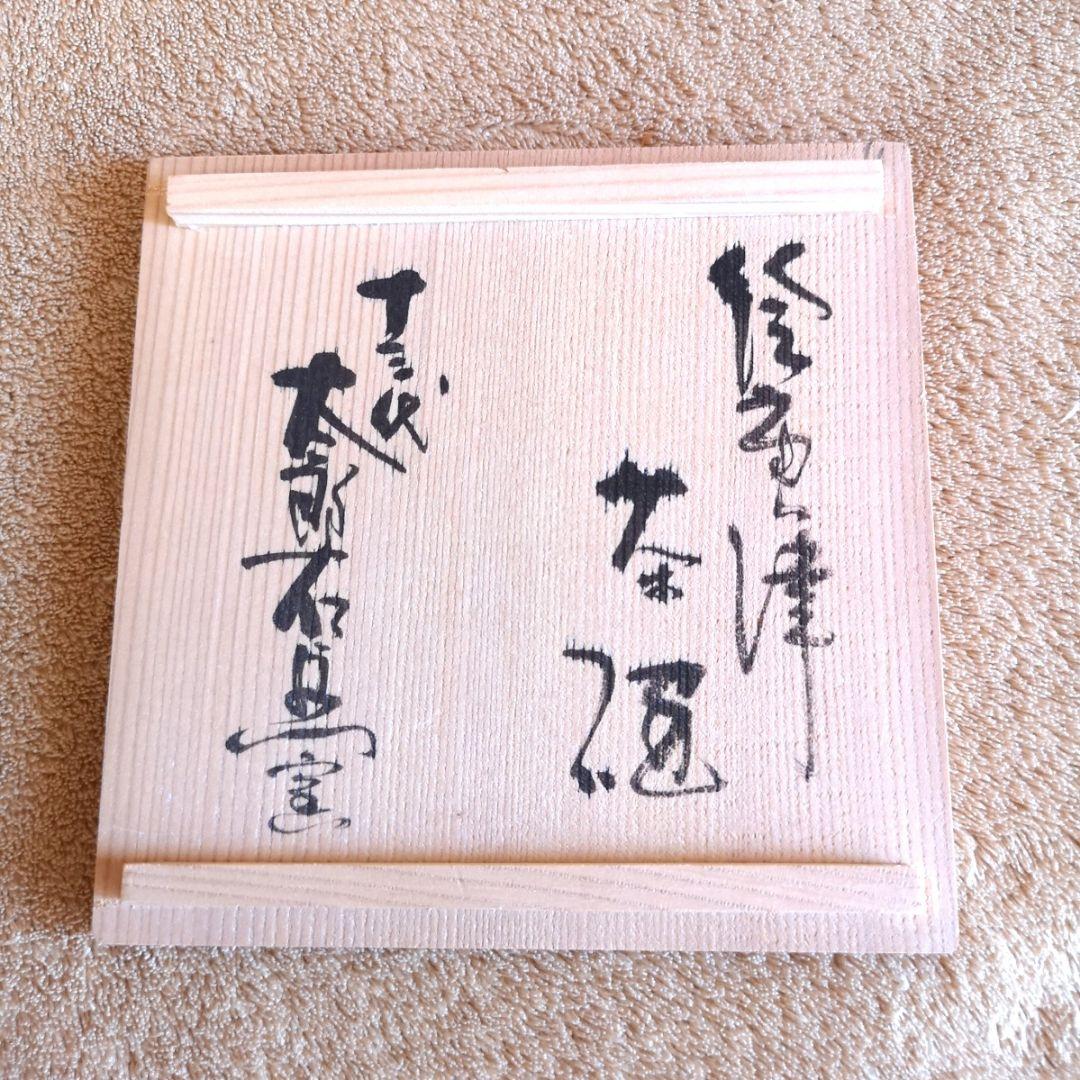 絵唐津
茶碗
十三代
太郎右衛門窯